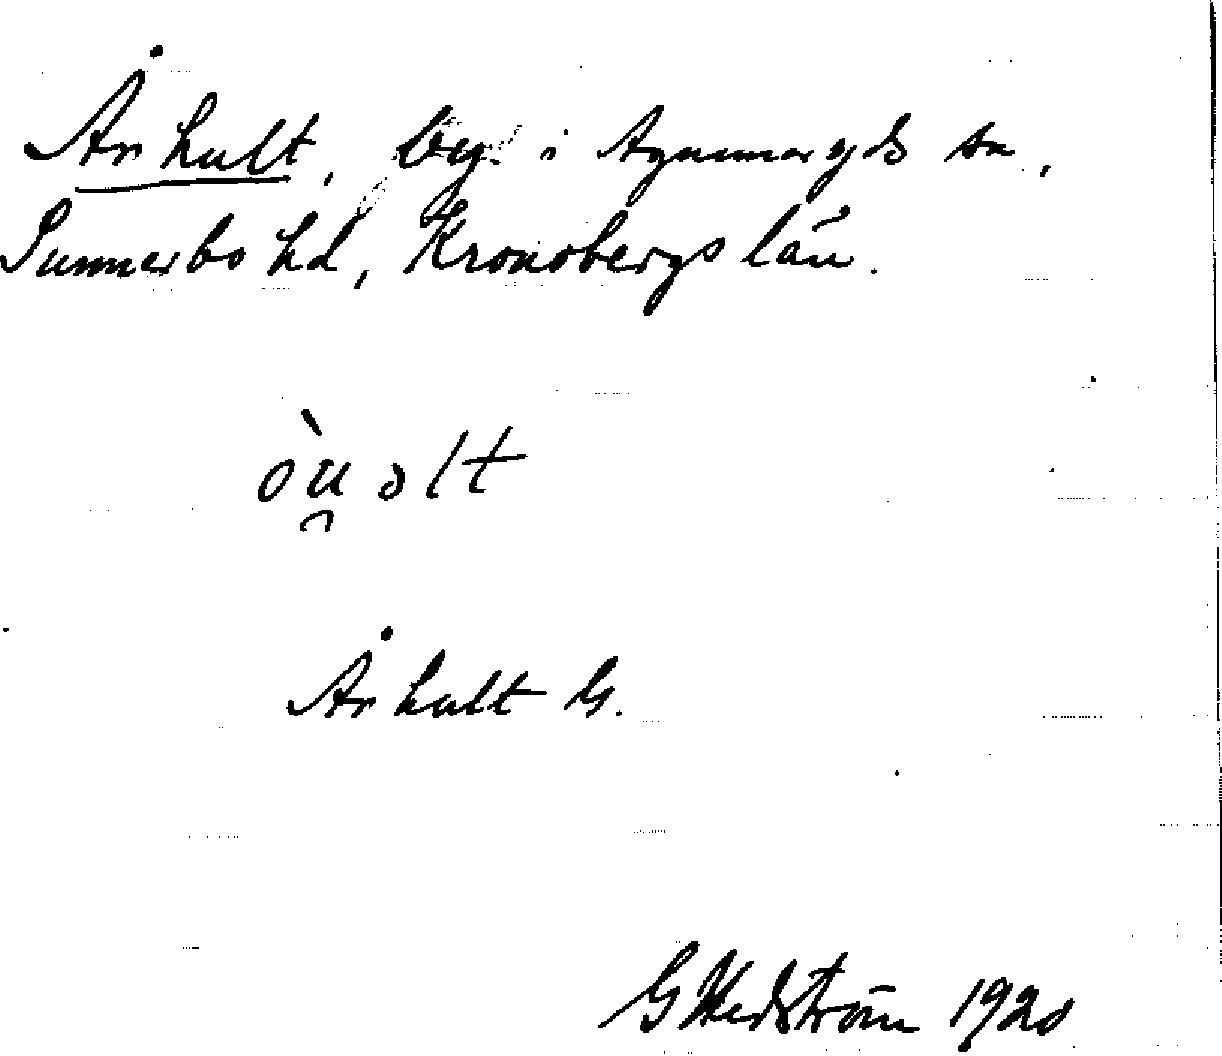 Århult, by i Agunnaryds sn,
Sunnerbo hd, Kronobergs län.
òu̯əlt
Århult G.
G Hedström 1920